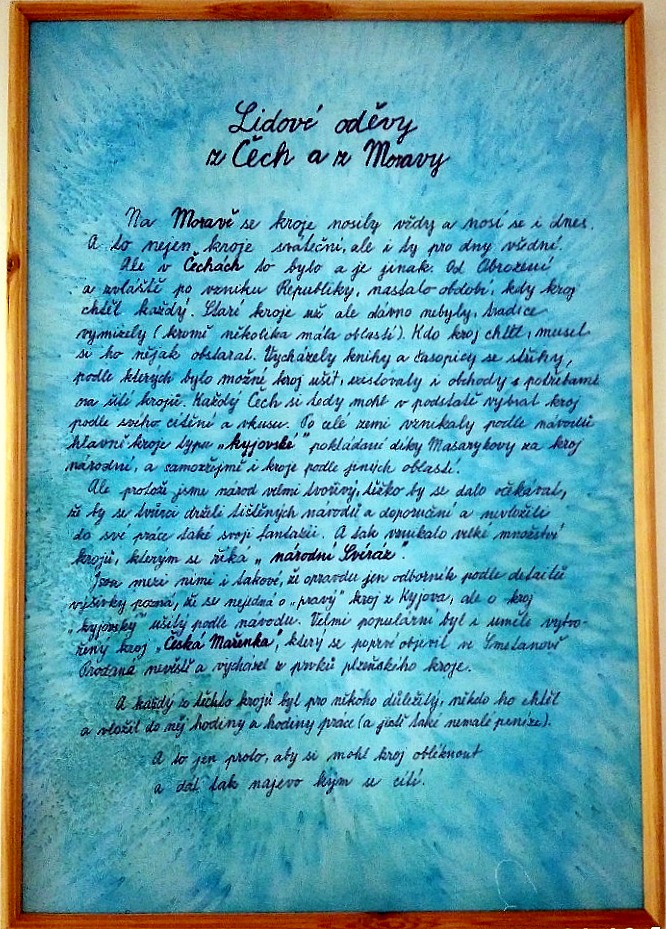 Lidové oděvy
z Čech a z Moravy
Na Moravě se kroje nosily vždy a nosí se i dnes.
A to nejen kroje sváteční, ale i ty pro dny všední.
Ale v Čechách to bylo a je jinak. Od Obrození
a zvláště po vzniku Republiky, nastalo období, kdy kroj
chtěl každý. Staré kroje už ale dávno nebyly, tradice
vymizely (kromě několika mála oblastí). Kdo kroj chtěl, musel
si ho nějak obstarat. Vycházely knihy a časopisy se střihy,
podle kterých bylo možné kroj ušít, existovaly i obchody s potřebami
na šití krojů. Každý Čech si tedy mohl v podstatě vybrat kroj
podle svého cítění a vkusu. Po celé zemi vznikaly podle návodů
hlavně kroje typu „kyjovské" pokládané díky Masarykovy za kroj
národní, a samozřejmě i kroje podle jiných oblastí.
Ale protož jsme národ velmi tvořivý, těžko by se dalo očekávat,
že by se tvůrci drželi tištěných návodů a doporučení a nevložili
do své práce také svoji fantazii. A tak vznikalo velké množství
krojů, kterým se říká „národní Svéráz".
Jsou mezi nimi i takové, že opravdu jen odborník podle detailů
výšivky pozná, že se nejedná o „pravý" kroj z Kyjova, ale o kroj
„kyjovský" ušitý podle návodu. Velmi populární byl i uměle vytvo-
řený kroj „Česká Mařenka", který se poprvé objevil ve Smetanově
Prodané nevěstě a vycházel z prvků plzeňského kroje.
A každý z těchto krojů byl pro někoho důležitý, někdo ho chtěl
a vložil do něj hodiny a hodiny práce (a jistě také nemalé peníze).
A to jen proto, aby si mohl kroj obléknout
a dát tak najevo kým se cítí.